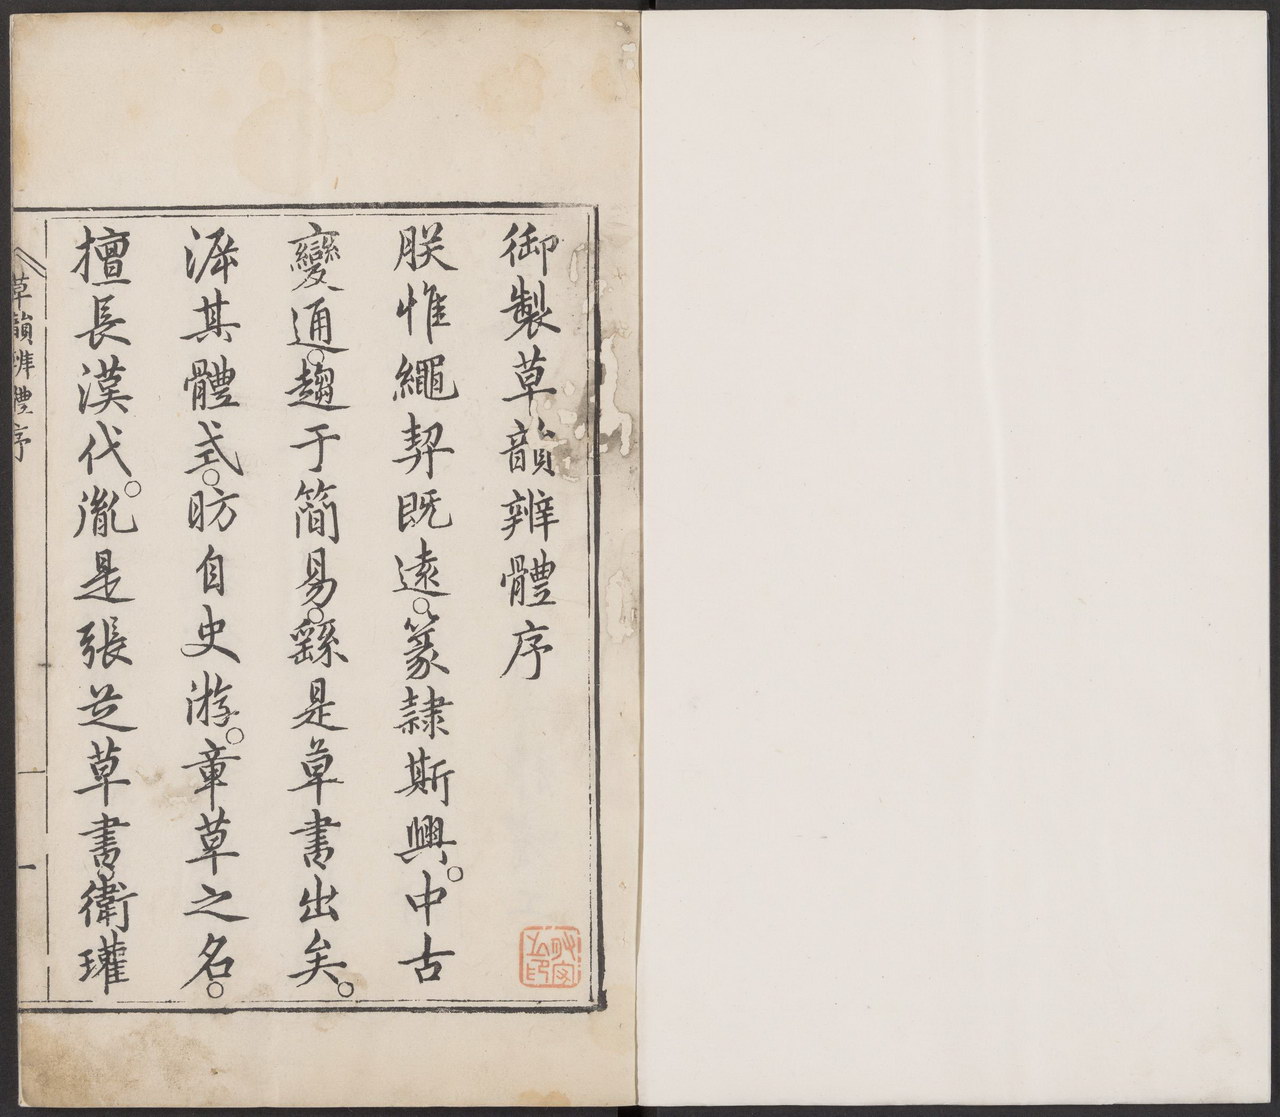 御製草韻辨體序
朕惟繩契既遠。篆隷斯興。中古
變通。趨于簡易。繇是草書出矣。
滓其體式。昉自史游。章草之名。
擅長漢代。胤是張芝草書。衛瓘
草韻辨體序
一